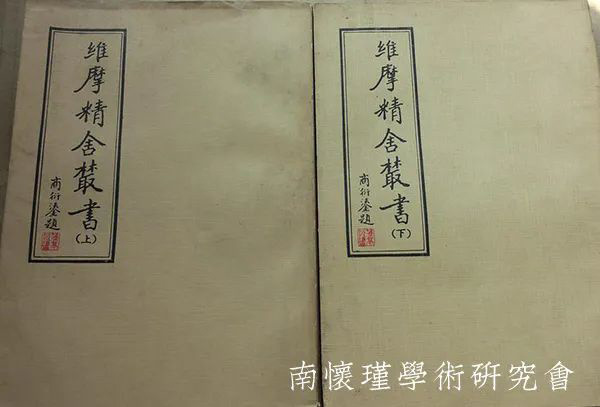 維摩精舍叢書
(上)
商衍鎏題
維摩精舍叢書
(下)
商衍鎏題
南懷瑾學術研究會